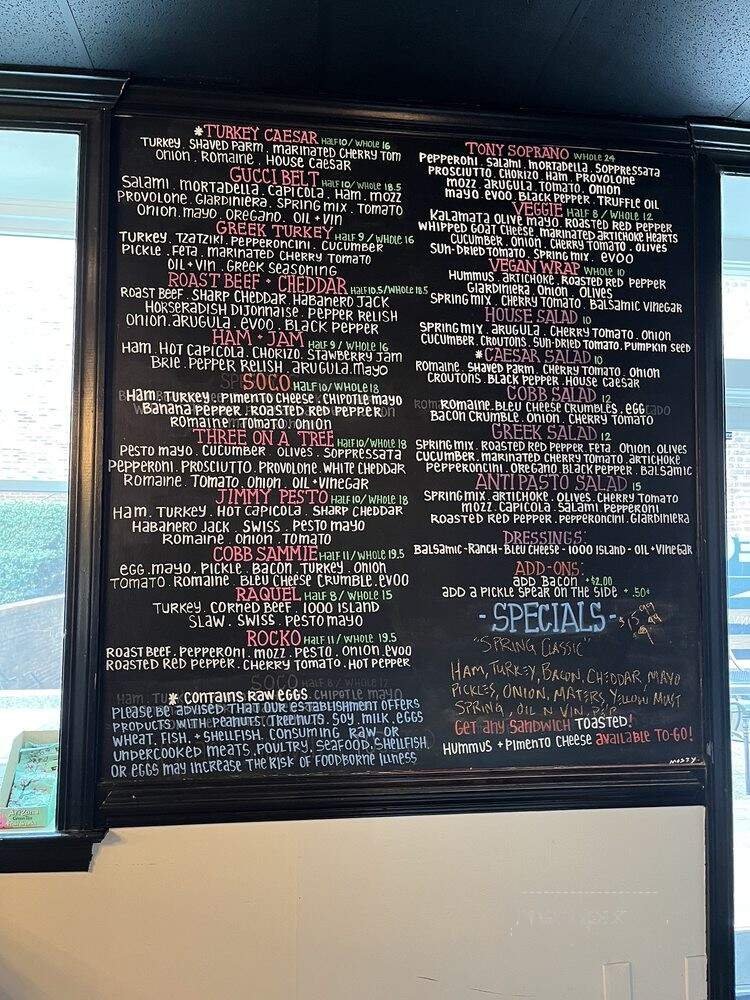 *TURKEY CAESAR HALF 10/ WHOLE 16
TURKEY. SHAVED PARM. MARINATED CHERRY TOM
ONION. ROMAINE. HOUSE CAESAR
GUCCI BELT HALF 10/ WHOLE 18.5
SALAMI. MORTADELLA. CAPICOLA. HAM. MOZZ
PROVOLONE. GIARDINIERA. SPRING MIX. TOMATO
ONION. MAYO. OREGANO. OIL + VIN
GREEK TURKEY HALF 9 / WHOLE 16
TURKEY. TZATZIKI. PEPPERONCINI. CUCUMBER
PICKLE. FETA. MARINATED CHERRY TOMATO
OIL + VIN. GREEK SEASONING
ROAST BEEF + CHEDDAR HALF 10.5/WHOLE 18.5
ROAST BEEF. SHARP CHEDDAR. HABANERO JACK
HORSERADISH DIJONNAISE. PEPPER RELISH
ONION. ARUGULA. EVOO. BLACK PEPPER
HAM + JAM HALF 9 / WHOLE 16
HAM. HOT CAPICOLA. CHORIZO. STAWBERRY JAM
BRIE. PEPPER RELISH. ARUGULA. MAYO
SOCO HALF 10/ WHOLE 18
HAM. TURKEY. PIMENTO CHEESE. CHIPOTLE MAYO
BANANA PEPPER. ROASTED RED PEPPER
ROMAINE. TOMATO. ONION
THREE ON A TREE HALF 10/ WHOLE 18
PESTO MAYO. CUCUMBER. OLIVES. SOPPRESSATA
PEPPERONI. PROSCIUTTO. PROVOLONE. WHITE CHEDDAR
ROMAINE. TOMATO. ONION. OIL + VINEGAR
JIMMY PESTO HALF 10/ WHOLE 18
HAM. TURKEY. HOT CAPICOLA. SHARP CHEDDAR
HABANERO JACK. SWISS. PESTO MAYO
ROMAINE. ONION. TOMATO
COBB SAMMIE HALF 11 / WHOLE 19.5
EGG. MAYO. PICKLE. BACON. TURKEY. ONION
TOMATO. ROMAINE. BLEU CHEESE CRUMBLE. EVOO
RAQUEL HALF 8 / WHOLE 15
TURKEY. CORNED BEEF. 1000 ISLAND
SLAW. SWISS. PESTO MAYO
ROCKO HALF 11 / WHOLE 19.5
ROAST BEEF. PEPPERONI. MOZZ. PESTO. ONION. EVOO
ROASTED RED PEPPER. CHERRY TOMATO. HOT PEPPER
SOCO HALF 8 / WHOLE 12
* CONTAINS RAW EGGS.
PLEASE BE ADVISED THAT OUR ESTABLISHMENT OFFERS
PRODUCTS WITH PEANUTS, TREENUTS, SOY, MILK, EGGS
WHEAT, FISH, + SHELLFISH. CONSUMING RAW OR
UNDERCOOKED MEATS, POULTRY, SEAFOOD, SHELLFISH,
OR EGGS MAY INCREASE THE RISK OF FOODBORNE ILLNESS
TONY SOPRANO WHOLE 24
PEPPERONI. SALAMI. MORTADELLA. SOPPRESSATA
PROSCIUTTO. CHORIZO. HAM. PROVOLONE
MOZZ. ARUGULA. TOMATO. ONION
MAYO. EVOO. BLACK PEPPER. TRUFFLE OIL
VEGGIE HALF 8 / WHOLE 12
KALAMATA OLIVE MAYO. ROASTED RED PEPPER
WHIPPED GOAT CHEESE. MARINATED ARTICHOKE HEARTS
CUCUMBER. ONION. CHERRY TOMATO. OLIVES
SUN-DRIED TOMATO. SPRING MIX. EVOO
VEGAN WRAP WHOLE 10
HUMMUS. ARTICHOKE. ROASTED RED PEPPER
GIARDINIERA. ONION. OLIVES
SPRING MIX. CHERRY TOMATO. BALSAMIC VINEGAR
HOUSE SALAD 10
SPRING MIX. ARUGULA. CHERRY TOMATO. ONION
CUCUMBER. CROUTONS. SUN-DRIED TOMATO. PUMPKIN SEED
*CAESAR SALAD 10
ROMAINE. SHAVED PARM. CHERRY TOMATO. ONION
CROUTONS. BLACK PEPPER. HOUSE CAESAR
COBB SALAD 12
ROMAINE. BLEU CHEESE CRUMBLES. EGG
BACON CRUMBLE. ONION. CHERRY TOMATO
GREEK SALAD 12
SPRING MIX. ROASTED RED PEPPER. FETA. ONION. OLIVES
CUCUMBER. MARINATED CHERRY TOMATO. ARTICHOKE
PEPPERONCINI. OREGANO. BLACK PEPPER. BALSAMIC
ANTIPASTO SALAD 15
SPRING MIX. ARTICHOKE. OLIVES. CHERRY TOMATO
MOZZ. CAPICOLA. SALAMI. PEPPERONI
ROASTED RED PEPPER. PEPPERONCINI. GIARDINIERA
DRESSINGS:
BALSAMIC - RANCH - BLEU CHEESE - 1000 ISLAND - OIL + VINEGAR
ADD-ONS:
ADD BACON + $2.00
ADD A PICKLE SPEAR ON THE SIDE + .50¢
- SPECIALS -
"SPRING CLASSIC"
HAM, TURKEY, BACON, CHEDDAR, MAYO
PICKLES, ONION, MATERS, YELLOW MUST
SPRING, OIL N VIN,
GET ANY SANDWICH TOASTED!
HUMMUS + PIMENTO CHEESE AVAILABLE TO-GO!
MOZZY